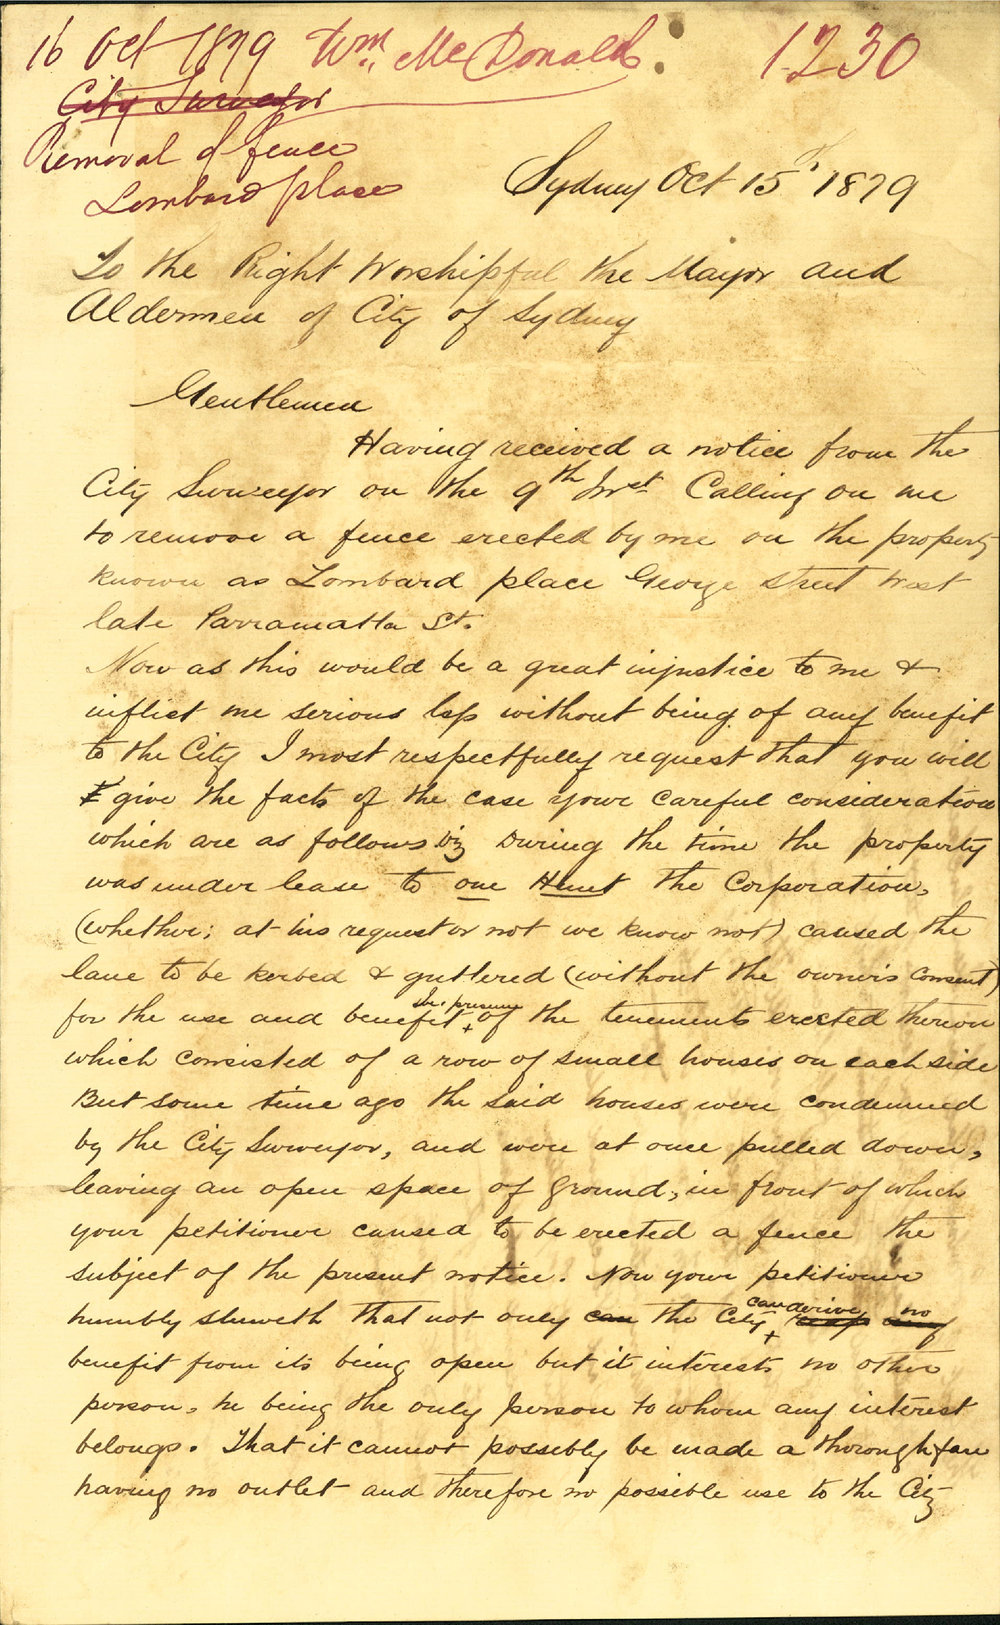 16 Oct 1879 Wm. McDonald. 1230
City Surveyor
Removal of fence
Lombard place
Sydney Oct 15th 1879
To the Right Worshipful the Mayor and
Aldermen of City of Sydney
Gentlemen
Having received a notice from the
City Surveyor on the 9th Inst Calling on me
to remove a fence erected by me on the property
known as Lombard place George Street West
late Parramatta St.
Now as this would be a great injustice to me &
inflict me serious loss without being of any benefit
to the City I most respectfully request that you will
give the facts of the case your careful consideration
which are as follows viz During the time the property
was under lease to one Hunt the Corporation,
(whether; at his request or not we know not) caused the
lane to be kerbed & guttered (without the owner's consent)
for the use and benefit, of the tenements erected thereon
which consisted of a row of small houses on each side
But some time ago the said houses were condemned
by the City Surveyor, and were at once pulled down,
leaving an open space of ground, in front of which
your petitioner caused to be erected a fence the
subject of the present notice. Now your petitioner
humbly sheweth that not only can the City can derive no
benefit from its being open but it interests no other
person, he being the only person to whom any interest
belongs. That it cannot possibly be made a thoroughfare
having no outlet and therefore no possible use to the City